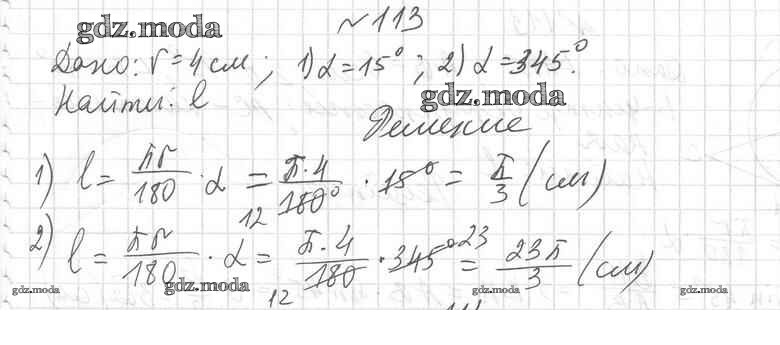 № 113
gdz.moda
Дано: r = 4 см; 1) α = 15°; 2) α = 345°.
Найти: l
gdz.moda
Решение
1) l = πr/180 · α = π·4/180° · 15° = π/3 (см)
12
2) l = πr/180 · α = π·4/180 · 345° = 23π/3 (см)
23
12
gdz.moda gdz.moda gdz.moda gdz.moda